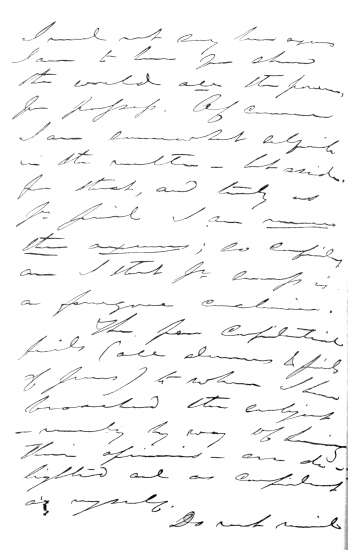 I need not say how anxious
I am to have you show
the world all the power
you possess. Of course
I am somewhat selfish
in the matter - but aside
from that, and truly as
yr friend I am more
than anxious; so confident
am I that yr success is
a foregone conclusion.
The few confidential
friends (all admirers & friends
of yours) to whom I have
broached the subject
- merely by way of having
their opinions - are de-
lighted and as confident
as myself.
Do not mind